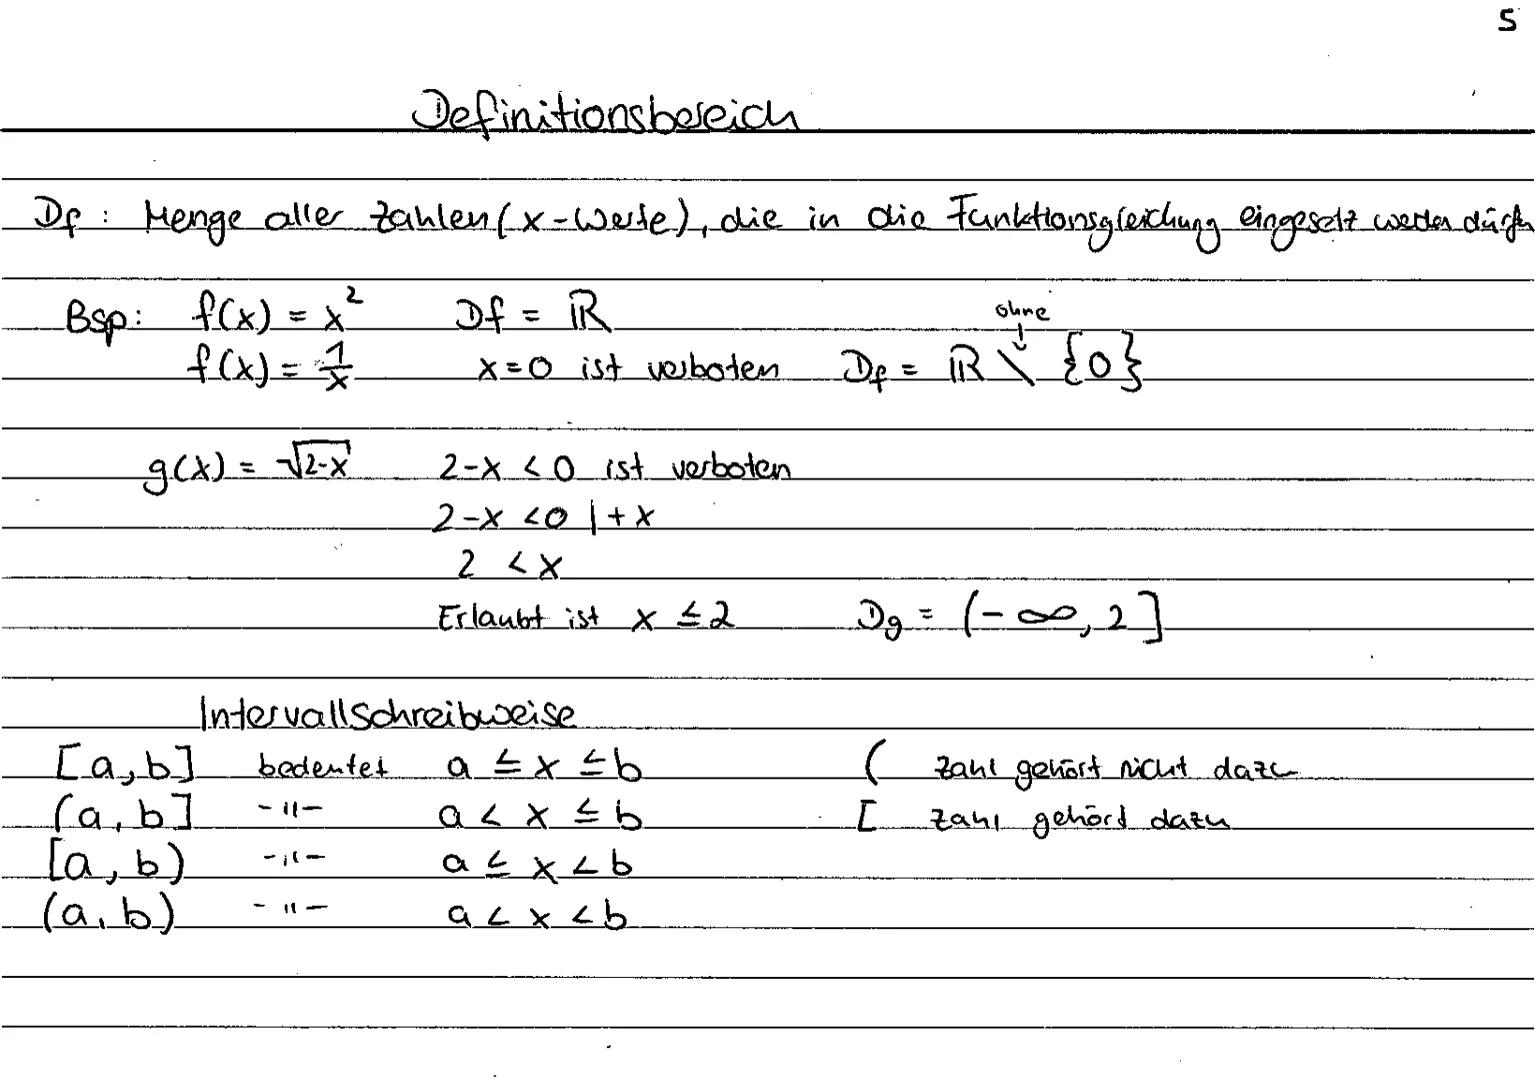 5
Definitionsbereich
Df : Menge aller Zahlen (x-Werte), die in die Funktionsgleichung eingesetzt werden dürfen
Bsp: f(x) = x² Df = ℝ
ohne
↓
f(x) = 1/x x=0 ist verboten Df = ℝ \ {0}
g(x) = √(2-x) 2-x < 0 ist verboten
2-x <0 | +x
2 < x
Erlaubt ist x ≤ 2 Dg = (-∞, 2]
Intervallschreibweise
[a,b] bedeutet a ≤ x ≤ b ( Zahl gehört nicht dazu
(a,b] -"- a < x ≤ b [ Zahl gehört dazu
[a,b) -"- a ≤ x < b
(a,b) -"- a < x < b